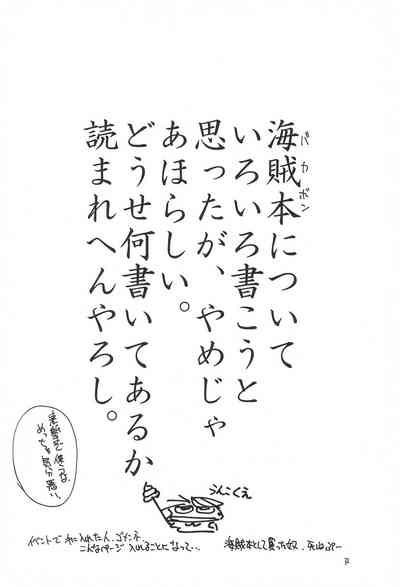 海賊本について
バカボン
いろいろ書こうと
思ったが、やめじゃ
あほらしい。
どうせ何書いてあるか
読まれへんやろし。
めっちゃ気分悪い。
うんこくえ
イベントで手に入れたん、ゴメンネ
こんなページ入れることになって…
海賊本として買った奴、死ねぷー